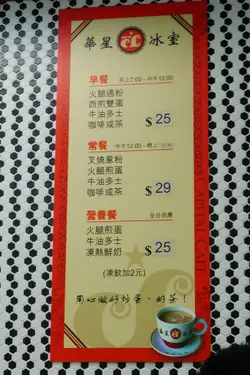 華星 冰室
早餐 早上7:00 - 中午12:00
火腿通粉
西煎雙蛋
牛油多士
咖啡或茶 $25
常餐 中午12:00 - 晚上
叉燒意粉
火腿煎蛋
牛油多士
咖啡或茶 $29
營養餐 全日供應
火腿煎蛋
牛油多士
凍熱鮮奶 $25
(凍飲加2元)
用心做好炒蛋、奶茶!
CAPITAL CAFE